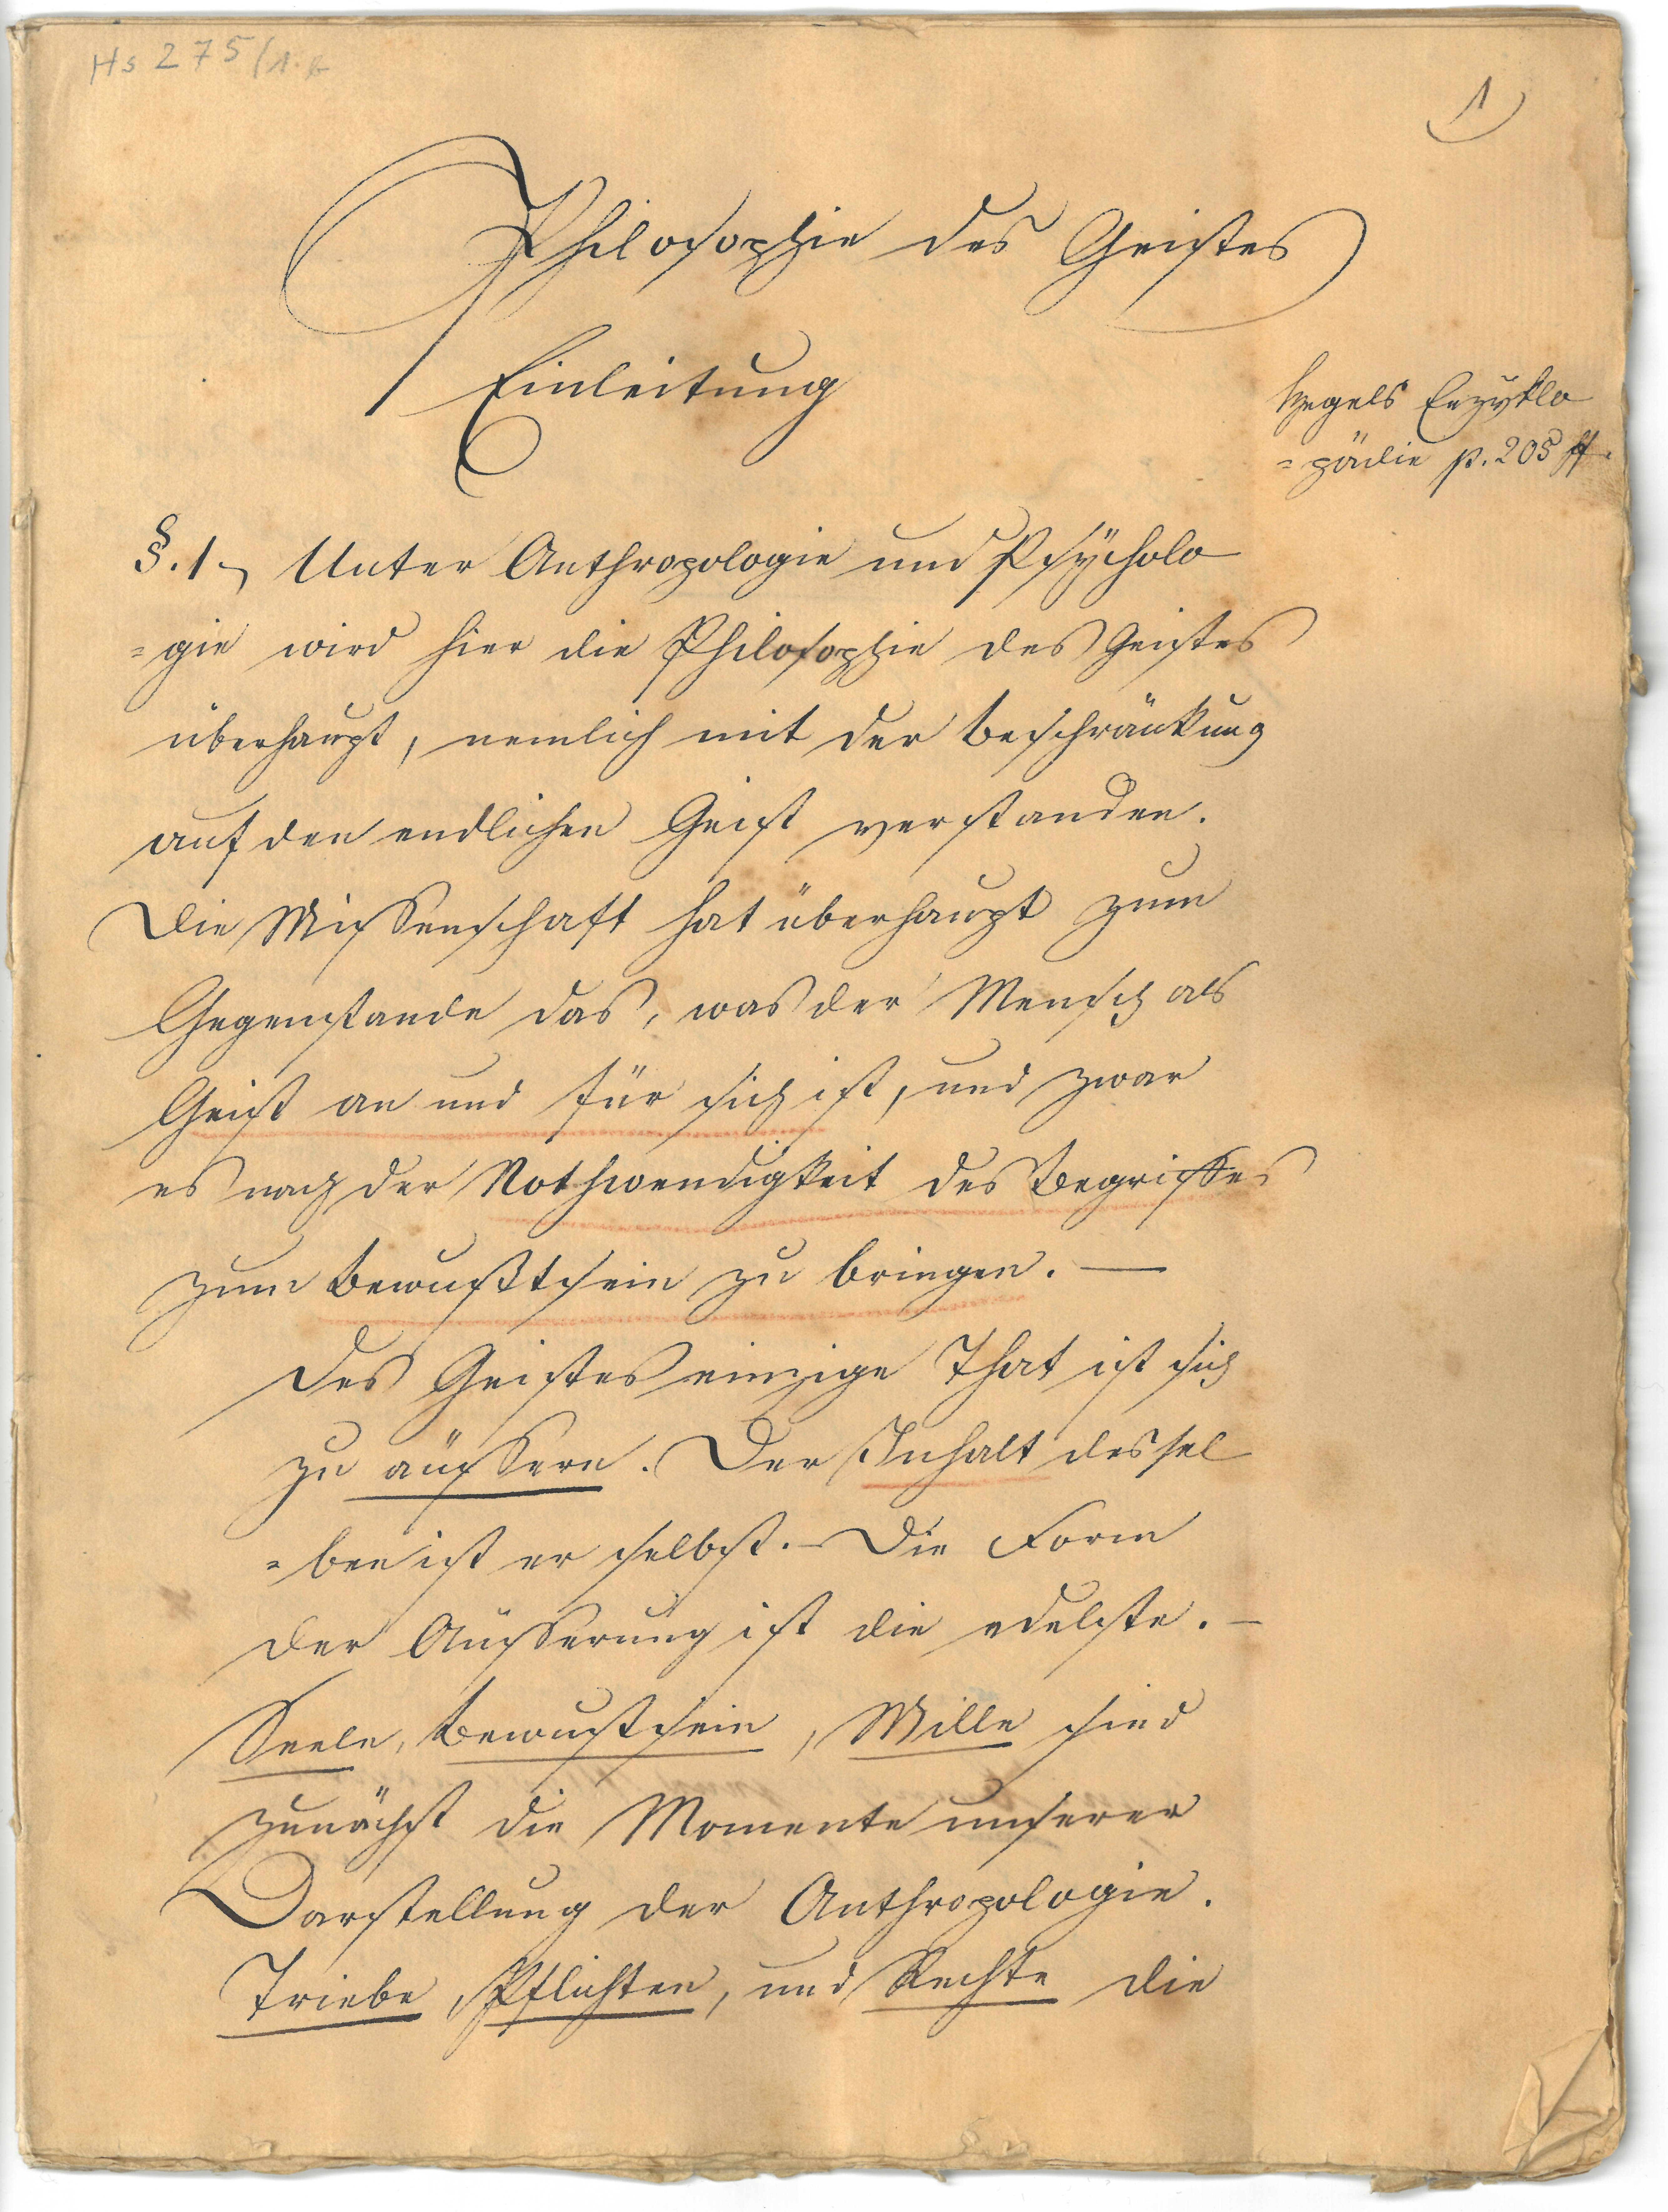 Hs 275/1.
1)
Philosophie des Geistes
Einleitung
Hegels Enzyklo
=pädie p. 205 ff.
§.1 Unter Anthropologie und Psÿcholo
=gie wird hier die Philosophie des Geistes
überhaupt, nemlich mit der Beschränkung
auf den endlichen Geist verstanden.
Die Wissenschaft hat überhaupt zum
Gegenstande das, was der Mensch als
Geist an und für sich ist, und zwar
es nach der Nothwendigkeit des Begriffes
zum Bewußtsein zu bringen. —
Des Geistes einzige That ist sich
zu äussern. Der Inhalt dessel
=ben ist er selbst. – Die Form
der Äusserung ist die edelste. –
Seele, Bewustsein, Wille sind
zunächst die Momente unserer
Darstellung der Anthropologie.
Triebe, Pflichten, und Rechte die